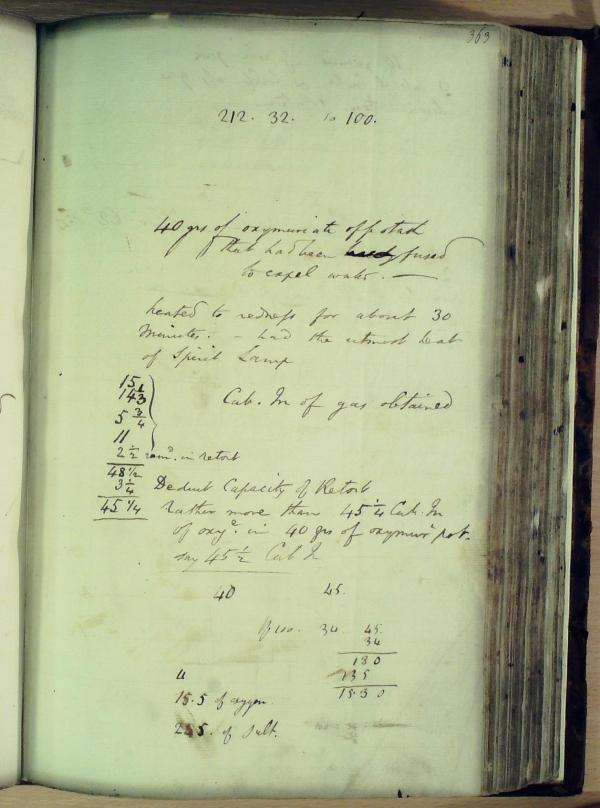 363
212. 32. to 100.
40 grs of oxymuriate of potash
that had been fused
to expel water. —
heated to redness for about 30
Minutes. – had the utmost heat
of Spirit Lamp
15
14 1/3
5 3/4
11
2 1/2 rem.g in retort
48 1/2
3 1/4
45 1/4
Cub. In of gas obtained
Deduct Capacity of Retort
rather more than 45 1/4 Cub. In
of oxy.n in 40 grs of oxymur pot.
say 45 1/2 Cub In
40 45.
If 100. 34 45.
34
180
135
15.30
15.5 of oxygen.
5. of Salt.